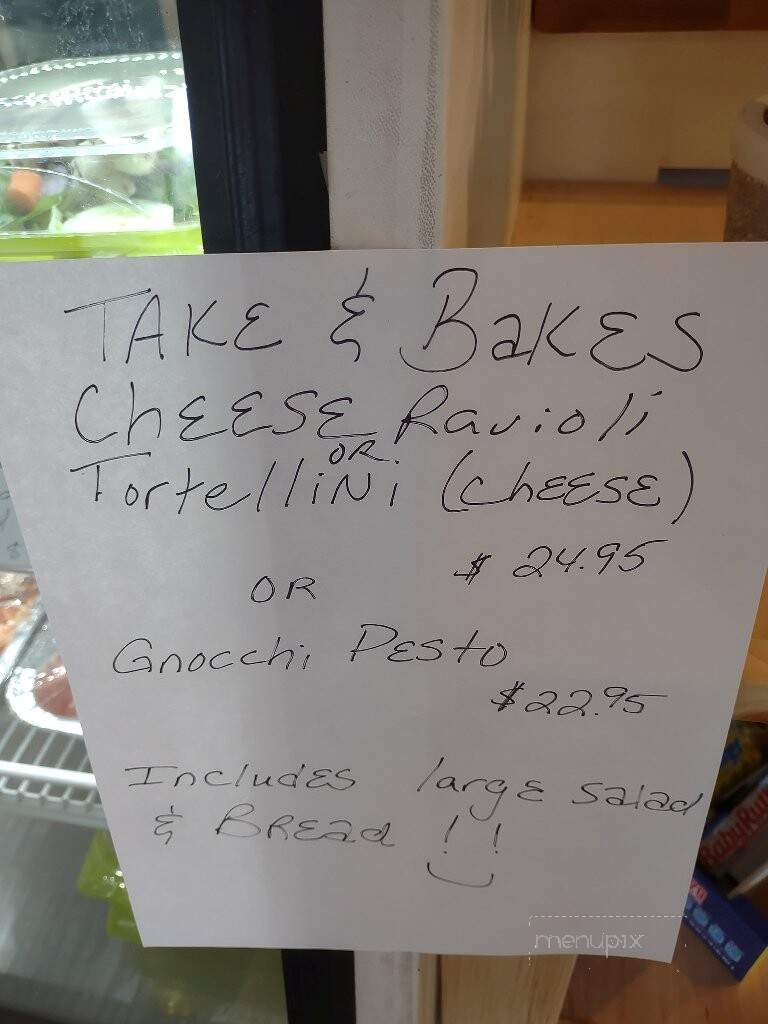 TAKE & BAKES
CHEESE Ravioli
OR
Tortellini (CHEESE)
$ 24.95
OR
Gnocchi Pesto
$22.95
Includes large Salad
& Bread !!
menupix
BabyRuth